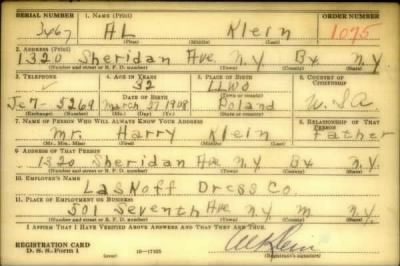 SERIAL NUMBER 1. NAME (Print) ORDER NUMBER
3467 AL Klein 1075
(First) (Middle) (Last)
2. ADDRESS (Print)
1320 Sheridan Ave N.Y Bx N.Y.
(Number and street or R. F. D. number) (Town) (County) (State)
3. TELEPHONE 4. AGE IN YEARS 5. PLACE OF BIRTH 6. COUNTRY OF CITIZENSHIP
32 LLWO
DATE OF BIRTH (Town or county)
Je 7-5269 March 27 1908 Poland U.S.A.
(Exchange) (Number) (Mo.) (Day) (Yr.) (State or country)
7. NAME OF PERSON WHO WILL ALWAYS KNOW YOUR ADDRESS 8. RELATIONSHIP OF THAT PERSON
Mr. Harry Klein Father
(Mr., Mrs., Miss) (First) (Middle) (Last)
9. ADDRESS OF THAT PERSON
1320 Sheridan Ave N.Y. Bx N.Y.
(Number and street or R. F. D. number) (Town) (County) (State)
10. EMPLOYER'S NAME
Laskoff Dress Co.
11. PLACE OF EMPLOYMENT OR BUSINESS
501 Seventh Ave N.Y m N.Y.
(Number and street or R. F. D. number) (Town) (County) (State)
I AFFIRM THAT I HAVE VERIFIED ABOVE ANSWERS AND THAT THEY ARE TRUE.
REGISTRATION CARD
D. S. S. Form 1 16—17105 Al Klein